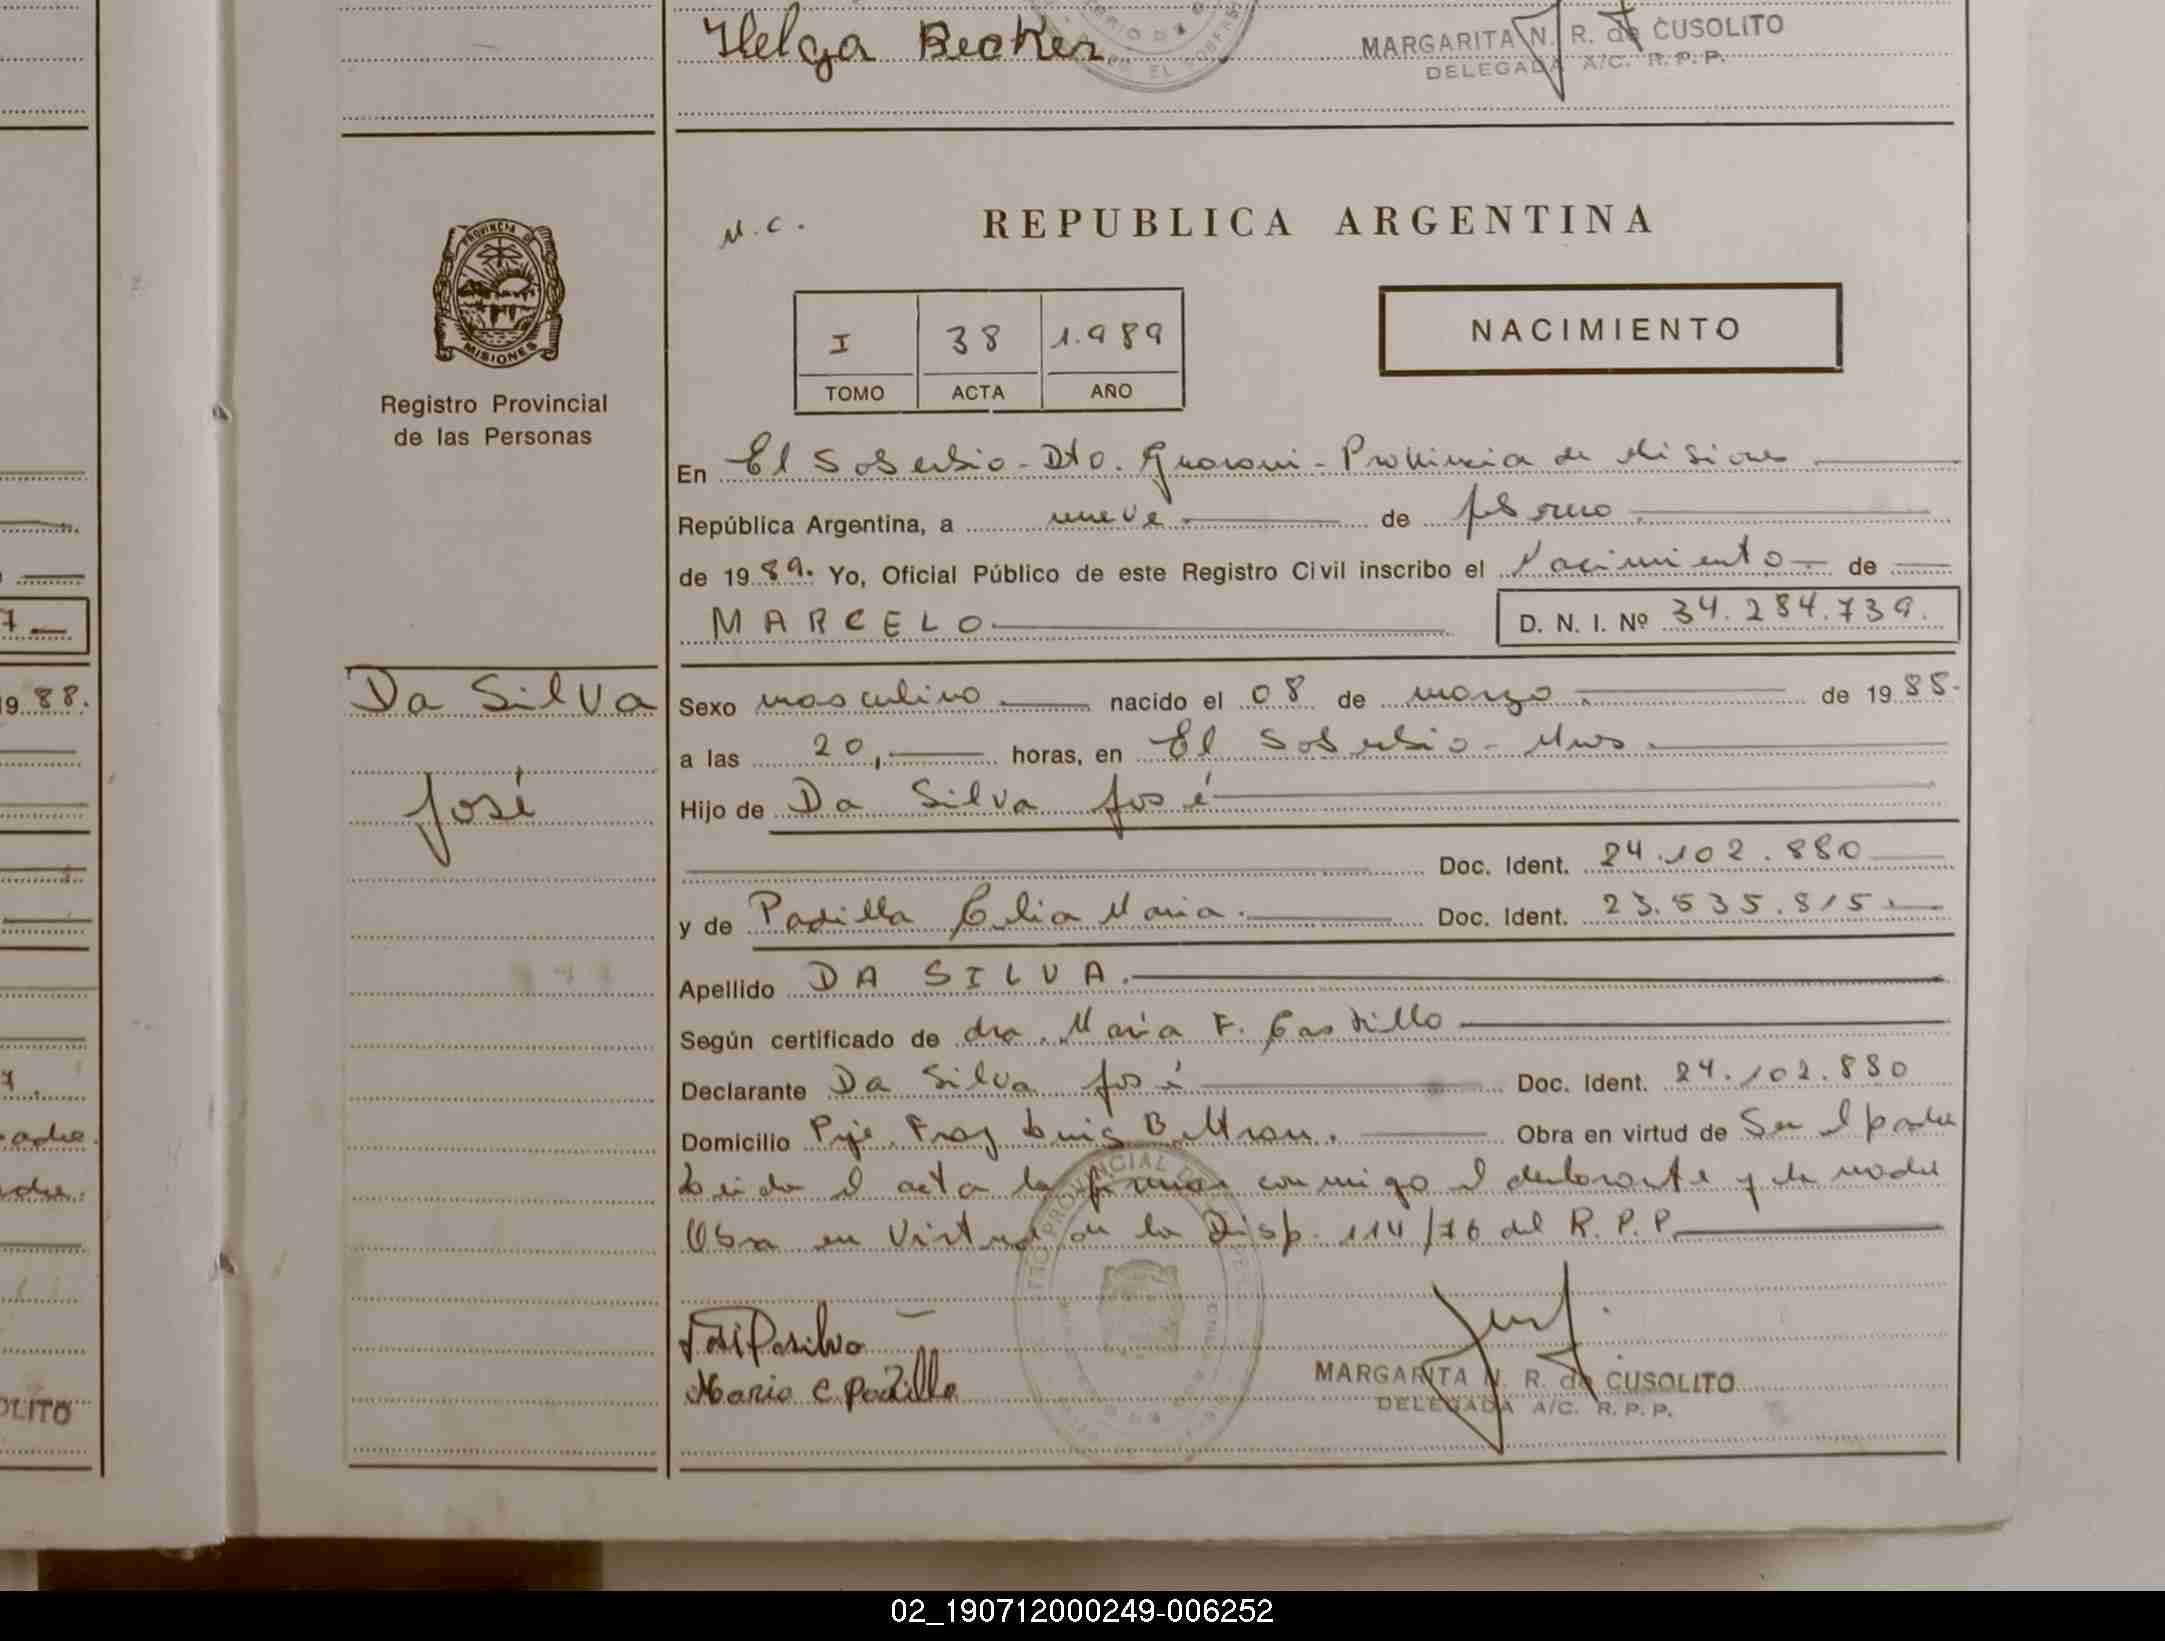 Helga Becker
MARGARITA N. R. de CUSOLITO
DELEGADA A/C. R. P. P.
N.C.
REPUBLICA ARGENTINA
PROVINCIA DE
MISIONES
Registro Provincial
de las Personas
I 38 1.989
TOMO ACTA AÑO
NACIMIENTO
En El Soberbio - Dto. Guarani - Provincia de Misiones
República Argentina, a nueve de febrero
de 1989. Yo, Oficial Público de este Registro Civil inscribo el Nacimiento de
MARCELO
D. N. I. Nº 34.284.739.
Da Silva
José
Sexo masculino nacido el 08 de marzo de 1988.
a las 20, horas, en El Soberbio - Mnes.
Hijo de Da Silva José
Doc. Ident. 24.102.880
y de Padilla Celia Maria. Doc. Ident. 23.535.815.
Apellido DA SILVA.
Según certificado de dra. Maria F. Castillo
Declarante Da Silva José Doc. Ident. 24.102.880
Domicilio Pje. Fray Luis Beltran. Obra en virtud de Ser el padre
Leida el acta la firman conmigo el declarante y la madre
Obra en Virtud de la Disp. 114/76 del R. P. P.
José Dasilva
Maria C Padilla
MARGARITA N. R. de CUSOLITO
DELEGADA A/C. R. P. P.
1988.
OLITO
02_190712000249-006252